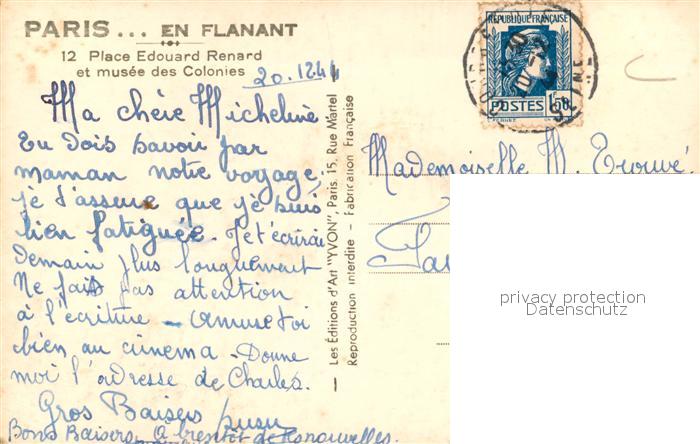 PARIS... EN FLANANT
12 Place Edouard Renard
et musée des Colonies
20.1244
Ma chère Micheline
Tu dois savoir par
maman notre voyage,
je t'assure que je suis
bien fatiguée. Je t'écrirai
Demain plus longuement
Ne fais pas attention
à l'écriture - Amuse toi
bien au cinema - Donne
moi l'adresse de Charles.
Gros Baisers
Bons Baisers. A bientôt de nouvelles.
Les Éditions d'Art "YVON", Paris 15, Rue Martel
Reproduction interdite - Fabrication Française
RÉPUBLIQUE FRANÇAISE
POSTES 1f50
Mademoiselle M. Trouvé
privacy protection
Datenschutz